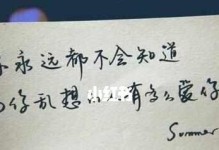 永远都不会知道
你乱想 有多么爱你
小红书
Summer